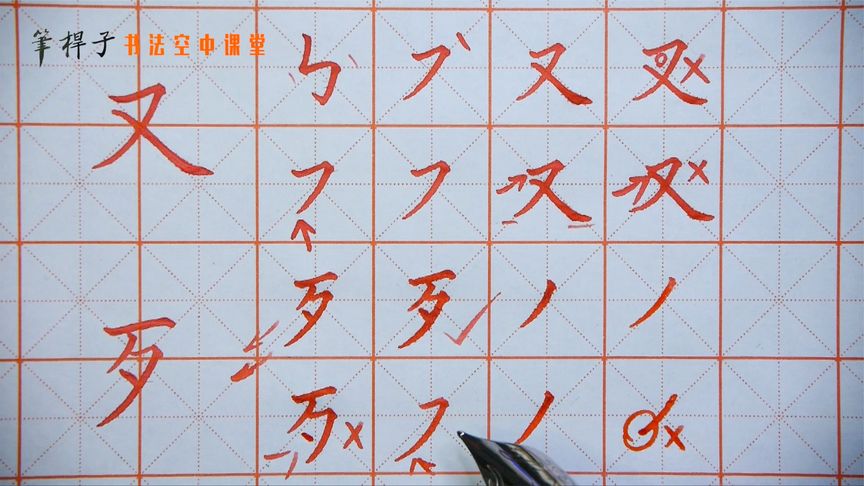 筆桿子 书法空中课堂
又
又 又
又 又
歹
歹 歹
歹